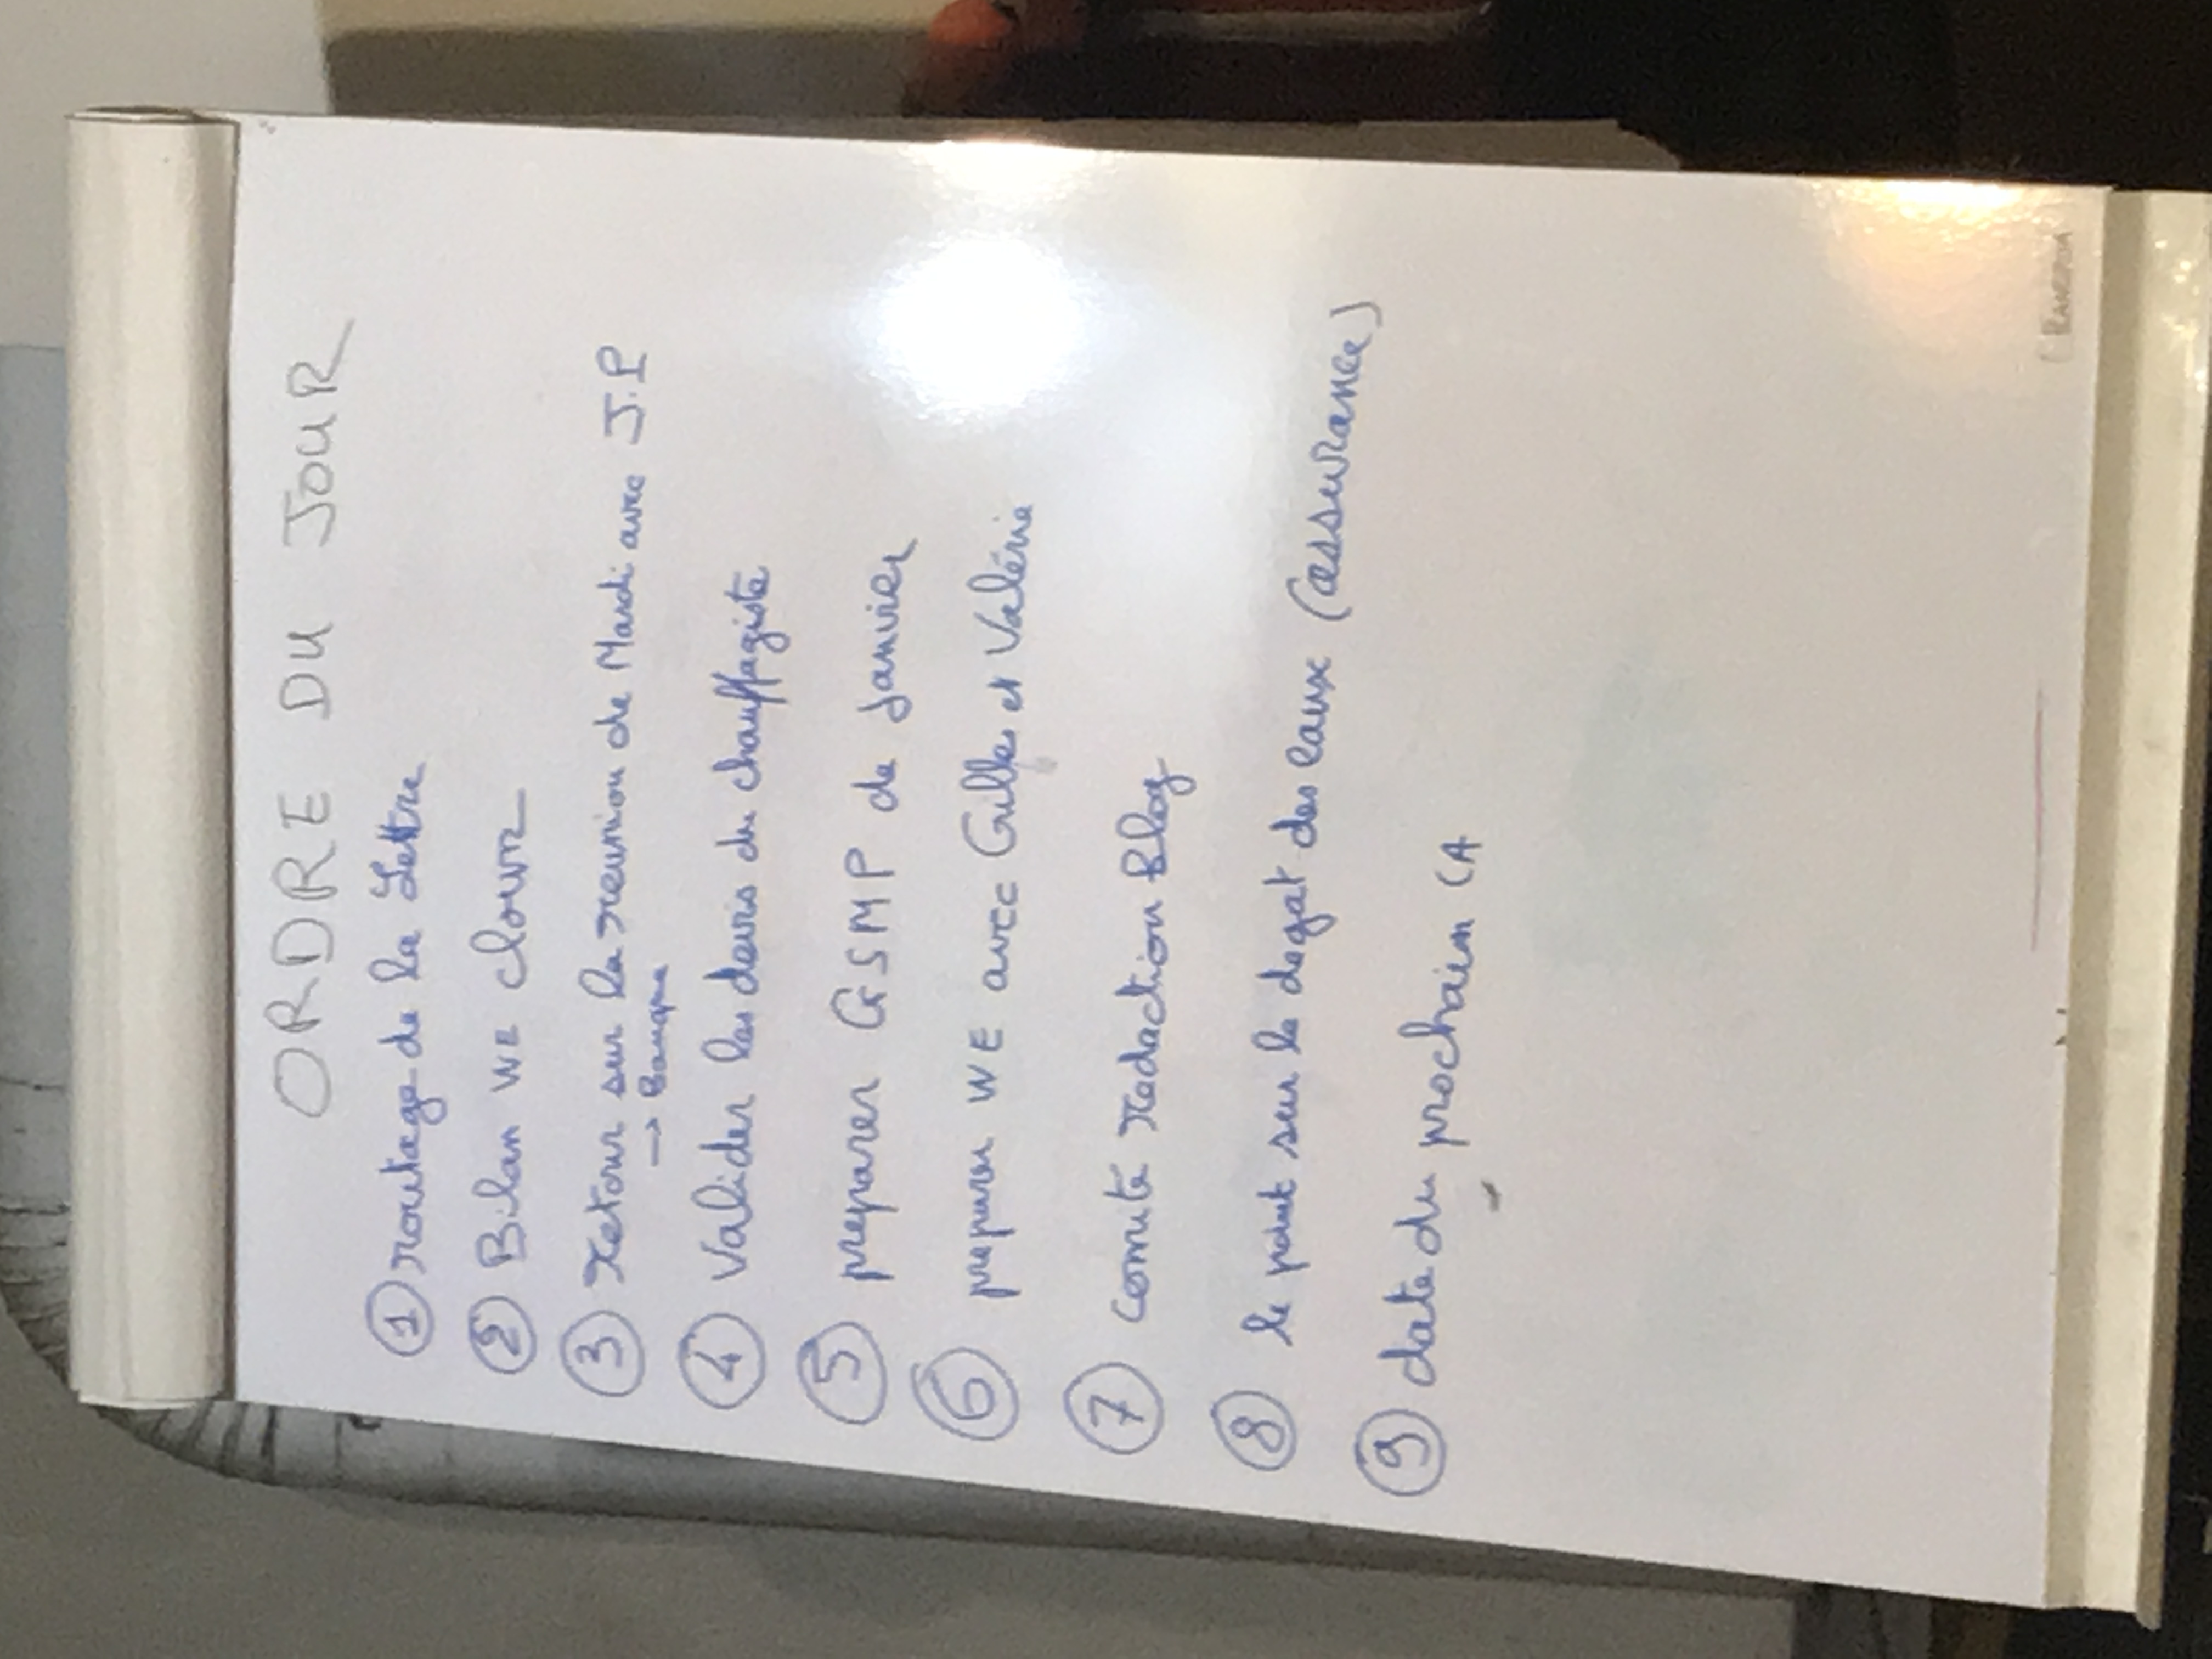 ORDRE DU JOUR
① routage de la Lettre
② Bilan WE clown
③ retour sur la reunion de Mardi avec J.P
→ Banque
④ Valider les devis du chauffagiste
⑤ preparer GSMP de Janvier
⑥ preparer WE avec Gilles et Valérie
⑦ comite redaction Blog
⑧ le point sur le degat des eaux (assurance)
⑨ date du prochain CA